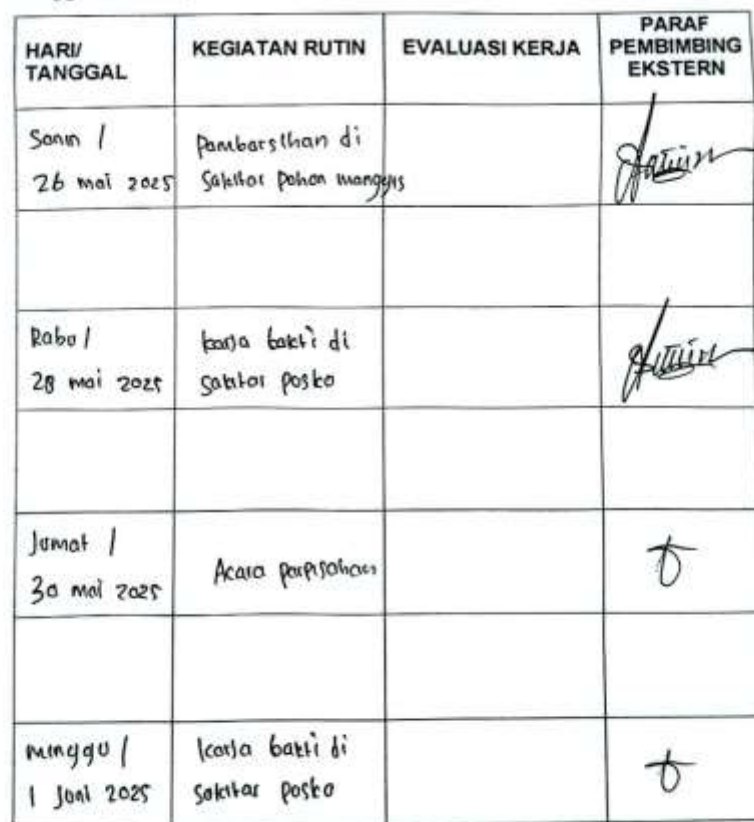 HARI/
TANGGAL
KEGIATAN RUTIN
EVALUASI KERJA
PARAF
PEMBIMBING
EKSTERN
Senin /
26 mei 2025
Pembersihan di
Sekitar pohon manggis
Rabu /
28 mei 2025
kerja bakti di
Sekitar posko
Jumat /
30 mei 2025
Acara perpisahan
minggu /
1 Juni 2025
kerja bakti di
Sekitar posko